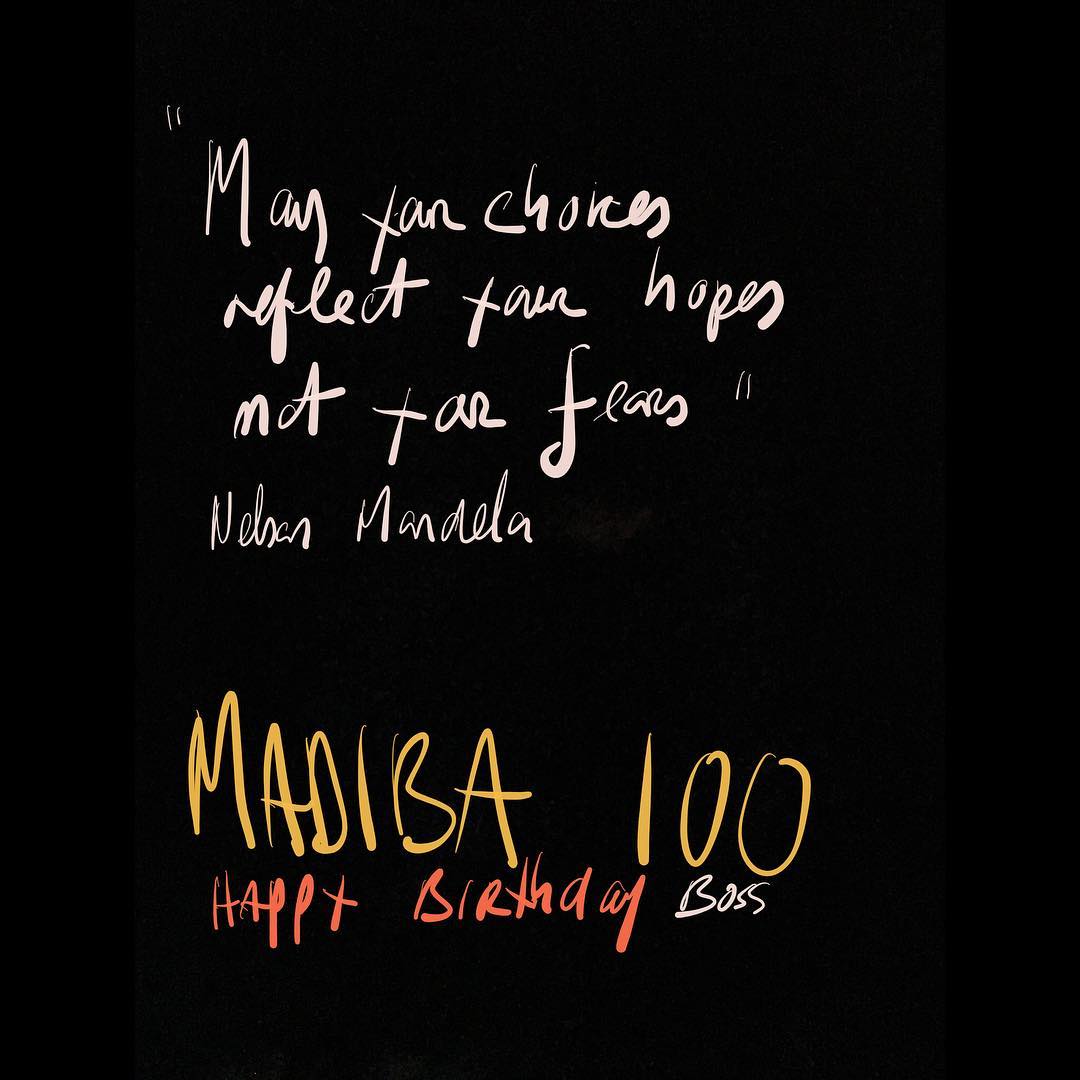 "May your choices
reflect your hopes
not your fears"
Nelson Mandela
MADIBA 100
HAPPY BIRthday Boss